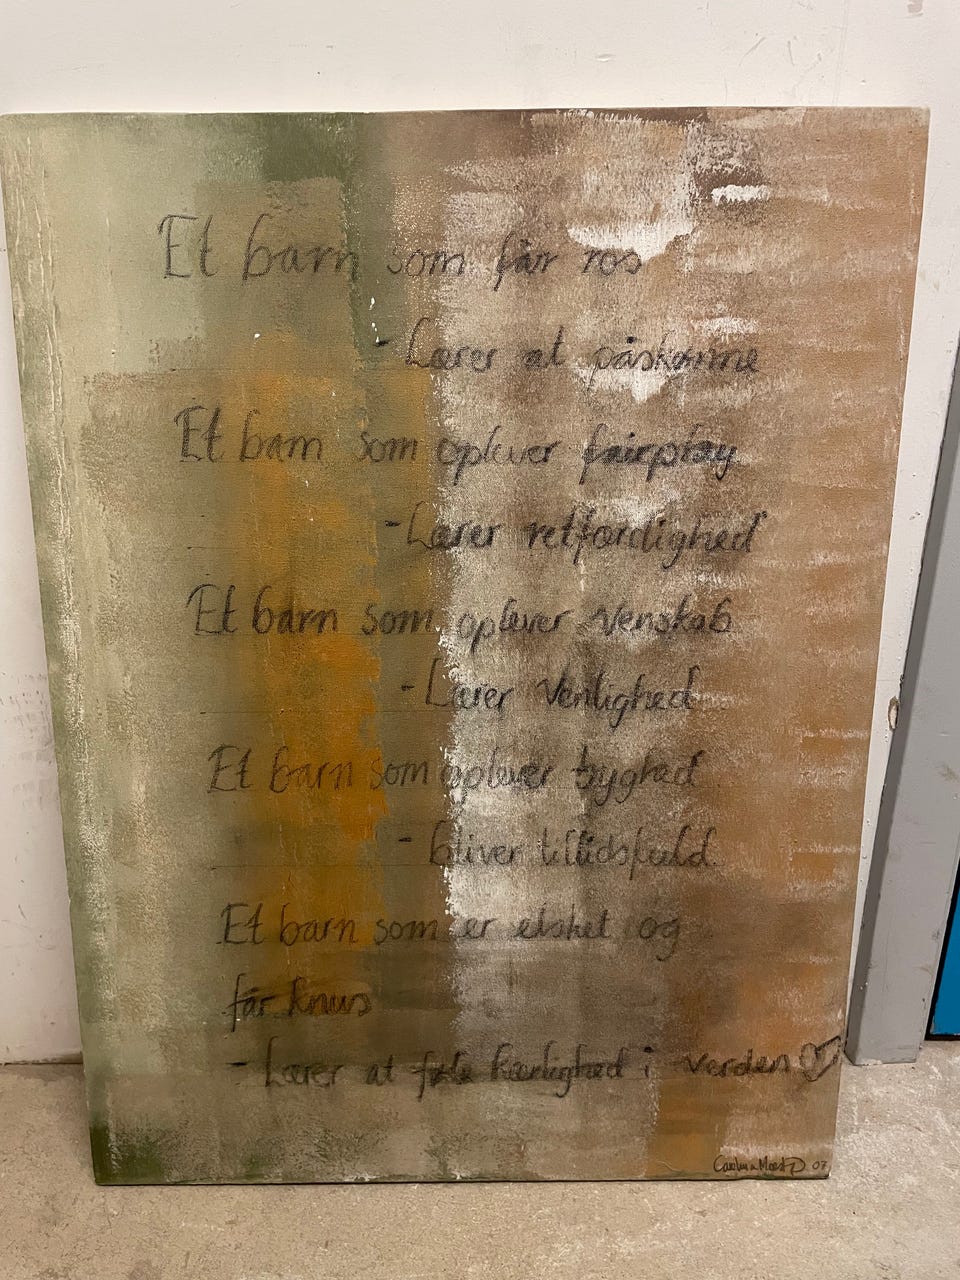 Et barn som får ros
- Lærer at påskønne
Et barn som oplever fairplay
- Lærer retfærdighed
Et barn som oplever venskab
- Lærer Venlighed
Et barn som oplever tryghed
- bliver tillidsfuld.
Et barn som er elsket og
får knus
- Lærer at føle kærlighed i verden
07